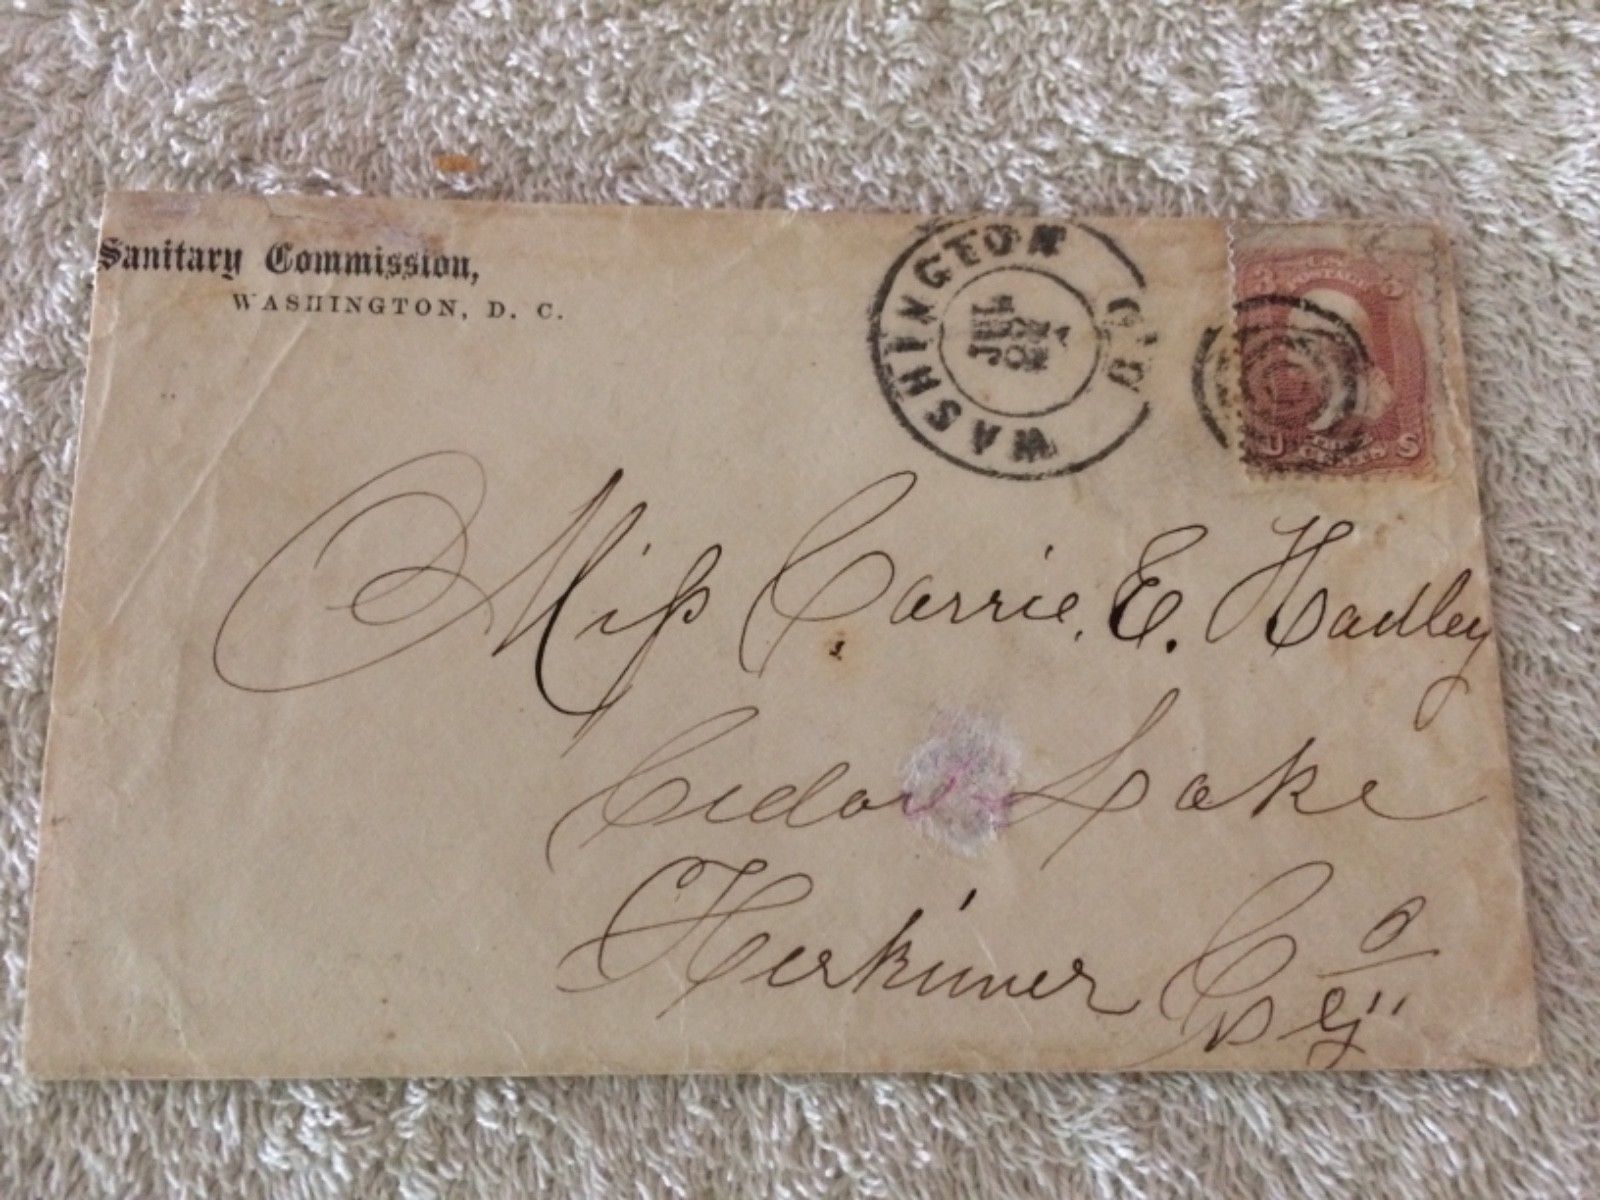 Sanitary Commission,
WASHINGTON, D. C.
WASHINGTON
JUL
U POSTAGE
3 3
U S
Miss Carrie. E. Hadley
Cedar Lake
Herkimer Co
N Y"